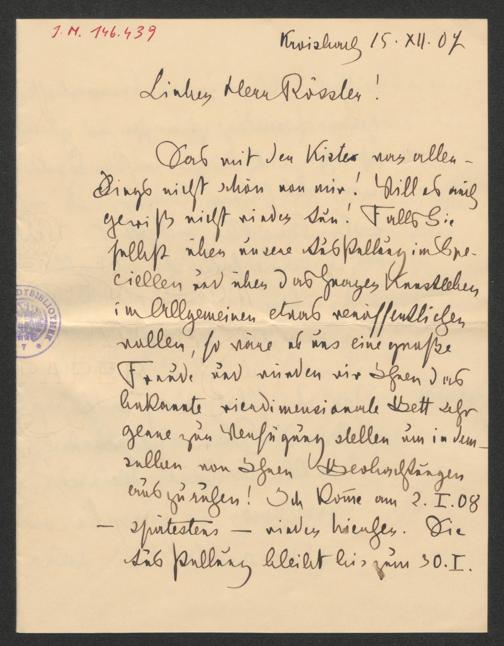 J.N. 146.439
Kroisbach 15. XII. 07
Lieber Herr Rössler!
Das mit den Kisten war aller-
dings nicht schön von mir! Will es auch
gewiß nicht wieder tun! Falls Sie
selbst über unsere Ausstellung im Spe-
ciellen und über das Grazer Kunstleben
im Allgemeinen etwas veröffentlichen
wollen, so wäre es uns eine große
Freude und würden wir Ihnen das
bekannte vierdimensionale Bett sehr
gerne zur Verfügung stellen um in dem-
selben von Ihren Beobachtungen
auszuruhen! Ich kome am 2. I. 08
– spätestens – wieder hierher. Die
Ausstellung bleibt bis zum 30. I.
DTBIBLIOTHEK